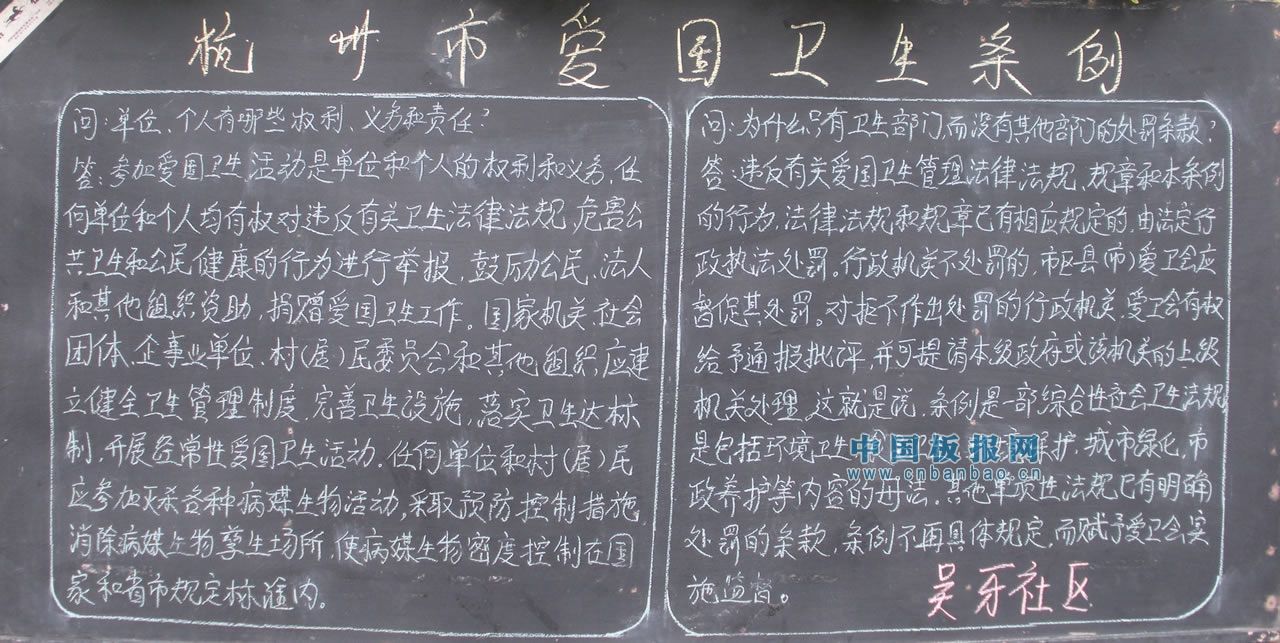 杭州市爱国卫生条例
问:单位、个人有哪些权利、义务和责任?
答:参加爱国卫生活动是单位和个人的权利和义务,任
何单位和个人均有权对违反有关卫生法律法规,危害公
共卫生和公民健康的行为进行举报,鼓励公民、法人
和其他组织资助,捐赠爱国卫生工作。国家机关、社会
团体、企事业单位、村(居)民委员会和其他组织应建
立健全卫生管理制度,完善卫生设施,落实卫生达标
制,开展经常性爱国卫生活动.任何单位和村(居)民
应参加灭杀各种病媒生物活动,采取预防控制措施,
消除病媒生物孳生场所,使病媒生物密度控制在国
家和省市规定标准内。
问:为什么只有卫生部门,而没有其他部门的处罚条款?
答:违反有关爱国卫生管理法律、法规、规章和本条例
的行为,法律、法规和规章已有相应规定的,由法定行
政执法处罚。行政机关不处罚的,市区县(市)爱卫会应
督促其处罚。对拒不作出处罚的行政机关,爱卫会有权
给予通报批评,并可提请本级政府或该机关的上级
机关处理,这就是说,条例是一部综合性社会卫生法规,
是包括环境卫生 保护,城市绿化,市
政养护等内容的母法,其他单项性法规已有明确
处罚的条款,条例不再具体规定,而赋予爱卫会实
施监督。
吴牙社区
中国板报网
www.cnbanbao.cn